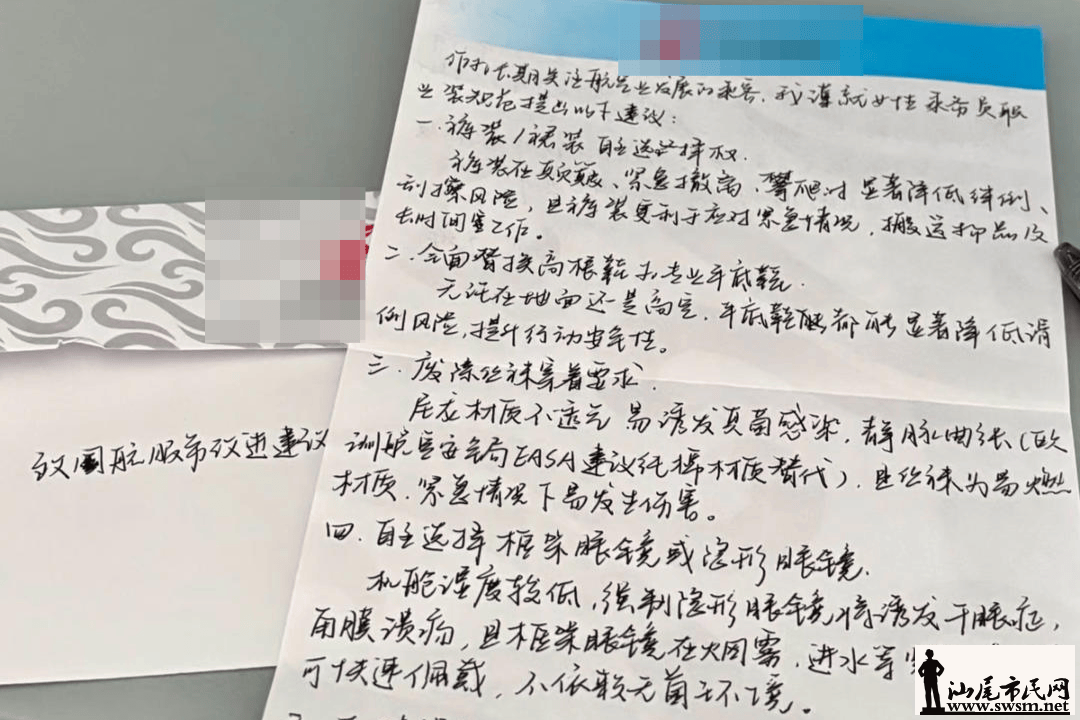 作为长期关注航空业发展的乘客，我谨就女性乘务员职
业装规范提出以下建议：
一.裤装/裙装自主选择权.
裤装在颠簸、紧急撤离、攀爬时显著降低绊倒、
刮擦风险，且裤装更利于应对紧急情况，搬运物品及
长时间工作。
二.全面替换高根鞋为专业平底鞋.
无论在地面还是高空，平底鞋都能显著降低滑
倒风险，提升行动安全性。
三.废除丝袜穿着要求.
尼龙材质不透气易诱发真菌感染，静脉曲张（欧
训航空安全局EASA建议纯棉材质替代），且丝袜为易燃
材质.紧急情况下易发生伤害。
四.自主选择框架眼镜或隐形眼镜.
机舱湿度较低，强制隐形眼镜将诱发干眼症，
角膜溃疡，且框架眼镜在火烟雾，进水等
可快速佩戴，不依赖无菌环境。
致国航服饰改进建议
汕尾市民网
www.swsm.net